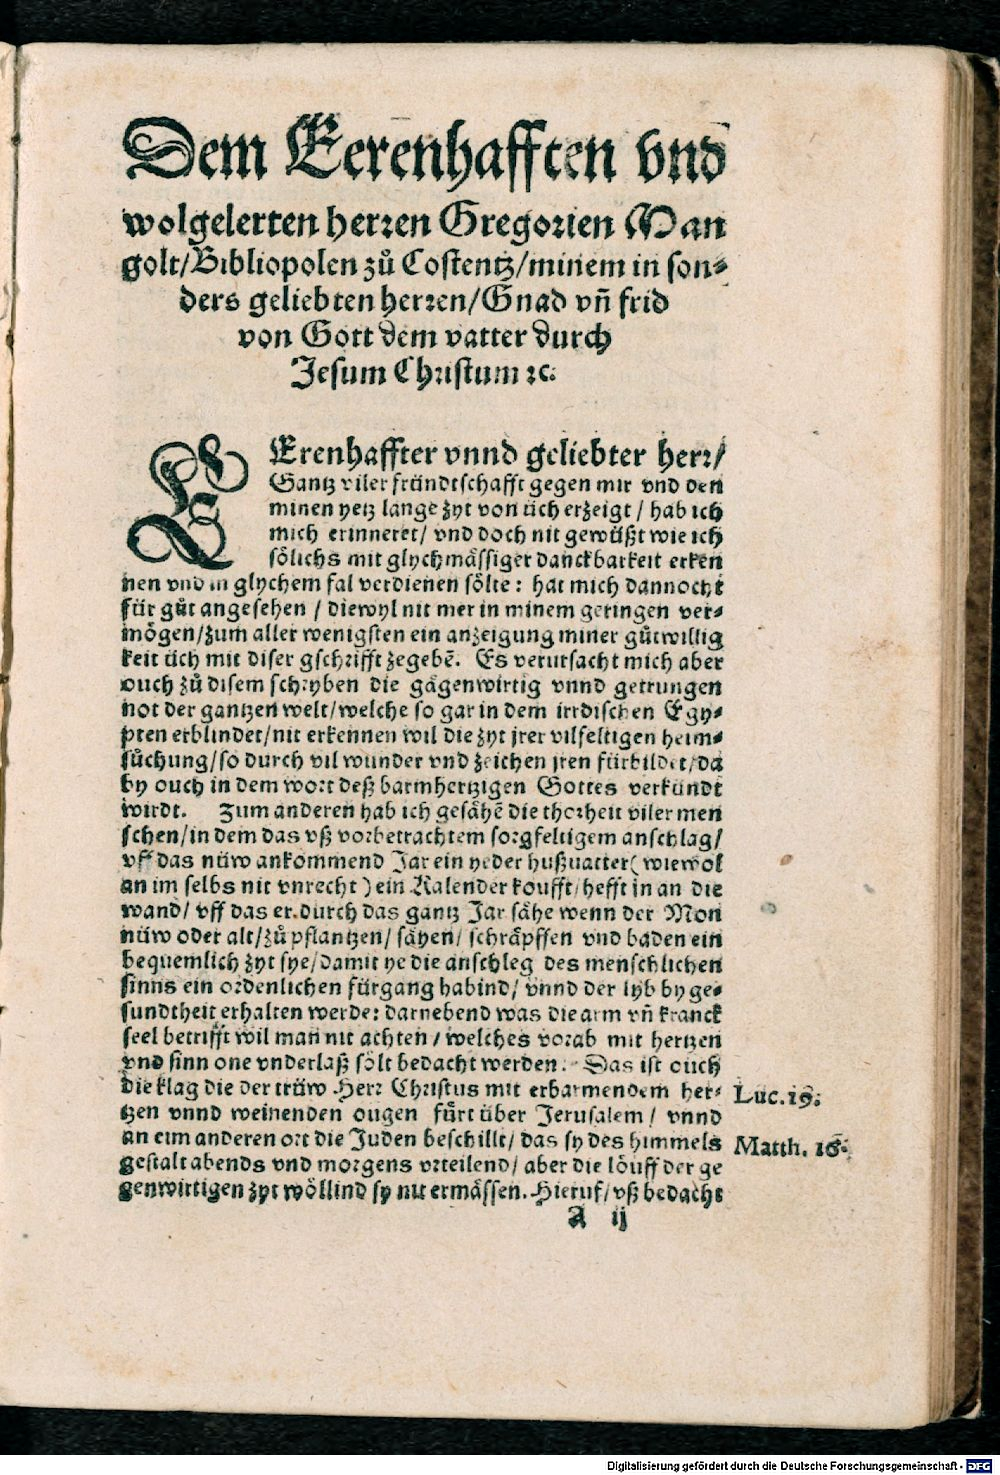 Dem Eerenhafften vnd
wolgelerten herꝛen Gregoꝛien Man
golt/Bibliopolen zuͦ Costentz/minem in son⸗
ders geliebten herꝛen/Gnad vñ frid
von Gott dem vatter durch
Jesum Chꝛistum ꝛc.
EErenhaffter vnnd geliebter herꝛ/
Gantz viler fründtschafft gegen mir vnd den
minen yetz lange zyt von üch erzeigt / hab ich
mich erinneret/ vnd doch nit gewüßt wie ich
sölichs mit glychmässiger danckbarkeit erken
nen vnd in glychem fal verdienen sölte: hat mich dannocht
für guͦt angesehen / diewyl nit mer in minem geringen ver⸗
mögen/zum aller wenigsten ein anzeigung miner guͦtwillig
keit üch mit diser gschrifft zegebẽ. Es verursacht mich aber
ouch zuͦ disem schꝛyben die gägenwirtig vnnd getrungen
not der gantzen welt/welche so gar in dem irrdischen Egy⸗
pten erblindet/nit erkennen wil die zyt jrer vilfeltigen heim⸗
suͦchung/so durch vil wunder vnd zeichen jren fürbildet/da
by ouch in dem woꝛt deß barmhertzigen Gottes verkündt
wirdt. Zum anderen hab ich gesähẽ die thoꝛheit viler men
schen/in dem das vß voꝛbetrachtem soꝛgfeltigem anschlag/
vff das nüw ankommend Jar ein yeder hußuatter( wiewol
an im selbs nit vnrecht ) ein Kalender koufft/hefft jn an die
wand/ vff das er durch das gantz Jar sähe wenn der Mon
nüw oder alt/zuͦ pflantzen/ säyen/ schräpffen vnd baden ein
bequemlich zyt sye/damit ye die anschleg des menschlichen
sinns ein oꝛdenlichen fürgang habind/ vnnd der lyb by ge⸗
sundtheit erhalten werde: darnebend was die arm vñ kranck
seel betrifft wil man nit achten / welches voꝛab mit hertzen
vnd sinn one vnderlaß sölt bedacht werden. Das ist ouch
die klag die der trüw Herꝛ Chꝛistus mit erbarmendem her⸗
tzen vnnd weinenden ougen fuͤrt über Jerusalem/ vnnd
an eim anderen oꝛt die Juden beschillt/ das sy des himmels
gestalt abends vnd moꝛgens vrteilend/ aber die löuff der ge
genwirtigen zyt wöllind sy nit ermässen. Hieruf/vß bedacht
Luc.19.
Matth. 16.
A ij
Digitalisierung gefördert durch die Deutsche Forschungsgemeinschaft - DFG